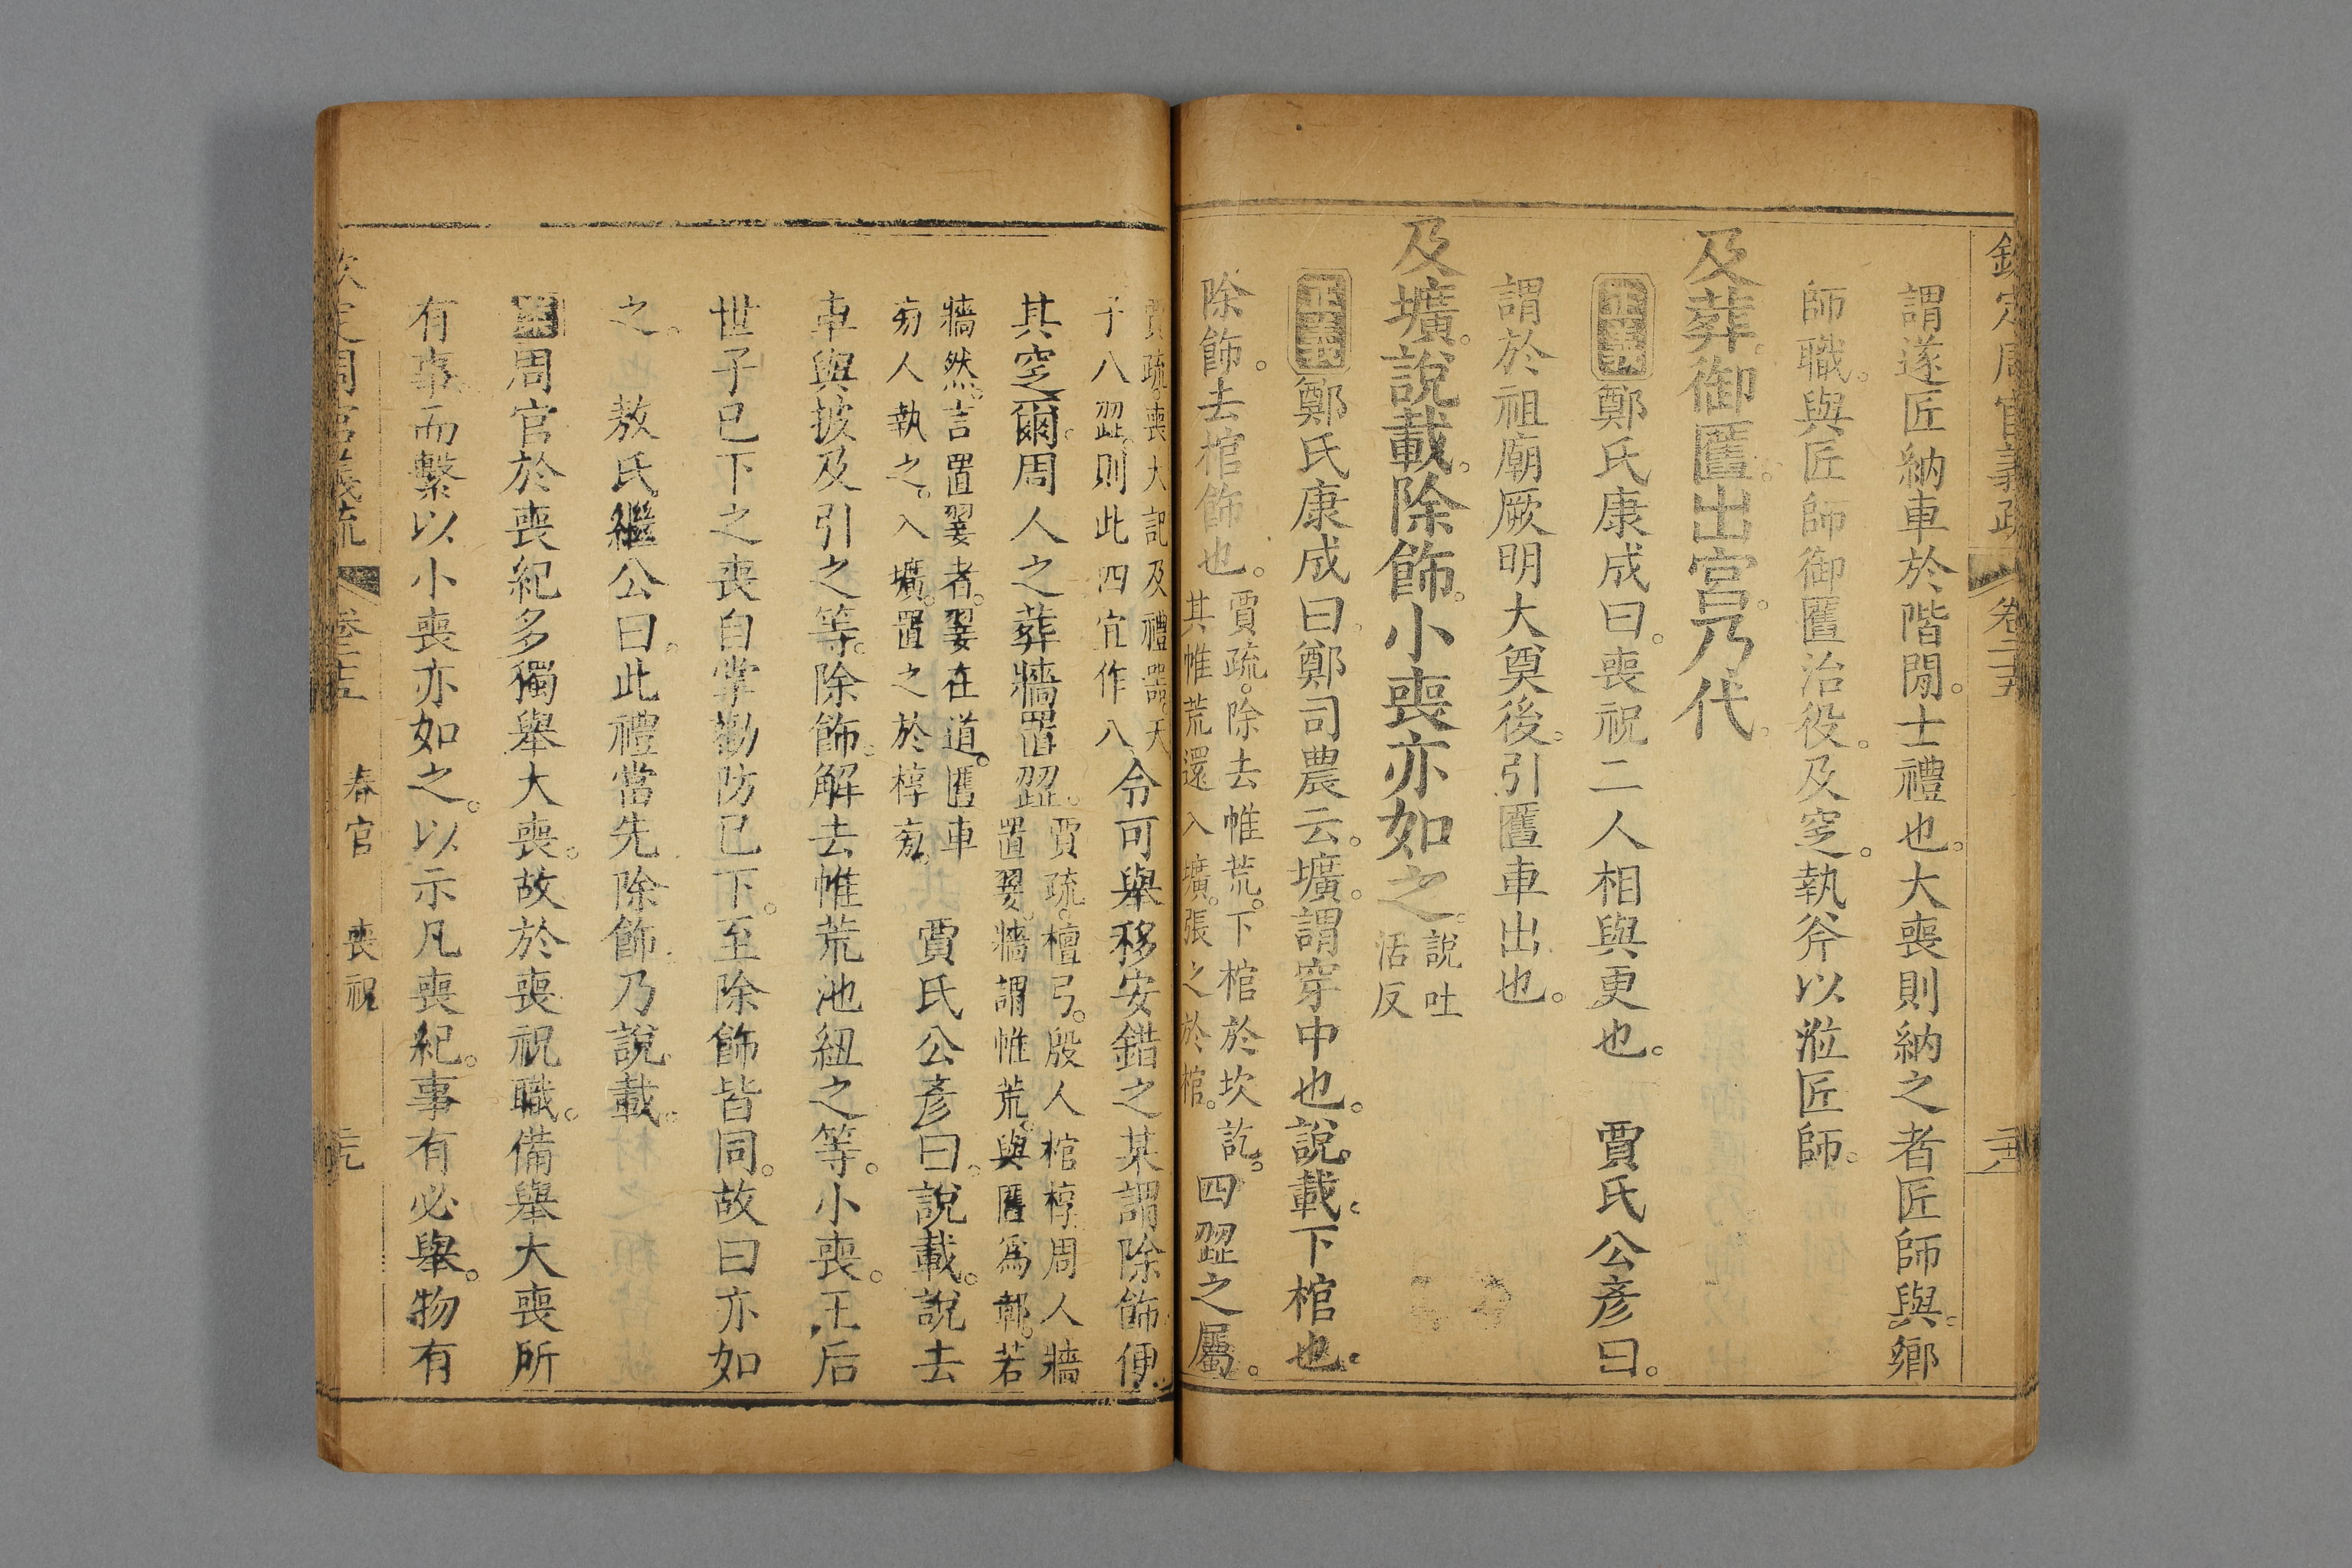 欽定周官義疏 卷二十五
謂遂匠納車於階閒。士禮也。大喪則納之者匠師與。鄉
師職。與匠師御匶治役。及窆。執斧以涖匠師。
及葬。御匶。出宮。乃代。
正義鄭氏康成曰。喪祝二人相與更也。 賈氏公彥曰。
謂於祖廟厥明大奠後。引匶車出也。
及壙。說載。除飾。小喪亦如之。說吐
活反
正義鄭氏康成曰。鄭司農云。壙。謂穿中也。說載。下棺也。
除飾。去棺飾也。賈疏。除去帷荒。下棺於坎訖。
其帷荒還入壙。張之於棺。
四翣之屬。
賈疏。喪大記及禮器。天
子八翣。則此四宜作八。
令可舉移安錯之。某謂除飾便
其窆爾。周人之葬。牆置翣。賈疏。檀弓。殷人棺椁。周人牆
置翣。牆謂帷荒。與匶爲鄣。若
牆然。言置翣者。翣在道。匶車
旁人執之。入壙。置之於椁旁。
賈氏公彥曰。說載。說去
車與披及引之等。除飾。解去帷荒池紐之等。小喪。王后
世子已下之喪。自掌勸防已下。至除飾皆同。故曰亦如
之。 敖氏繼公曰。此禮當先除飾。乃說載。
周官於喪紀多獨舉大喪。故於喪祝職。備舉大喪所
有事。而繫以小喪亦如之。以示凡喪紀。事有必舉。物有
欽定周官義疏 卷二十五 春官 喪祝